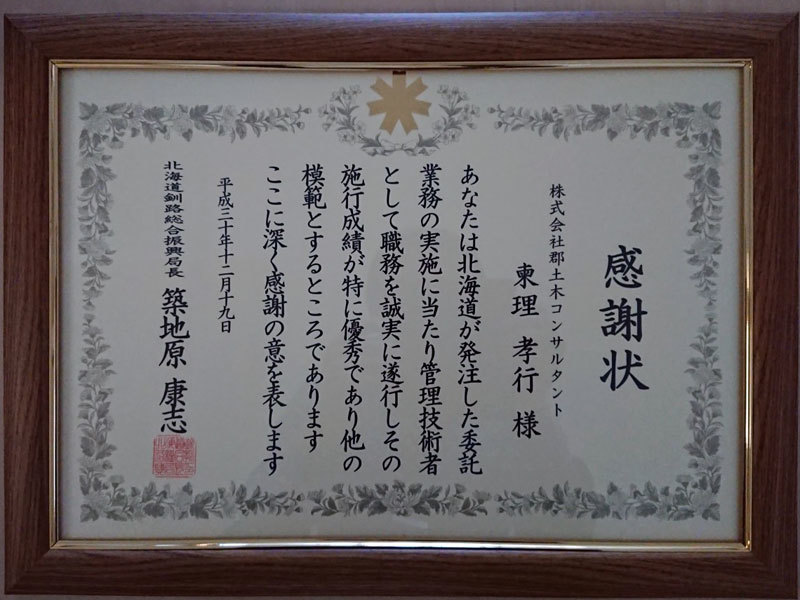 感謝状
株式会社郡土木コンサルタント
東理 孝行 様
あなたは北海道が発注した委託
業務の実施に当たり管理技術者
として職務を誠実に遂行しその
施行成績が特に優秀であり他の
模範とするところであります
ここに深く感謝の意を表します
平成三十年十二月十九日
北海道釧路総合振興局長 築地原 康志